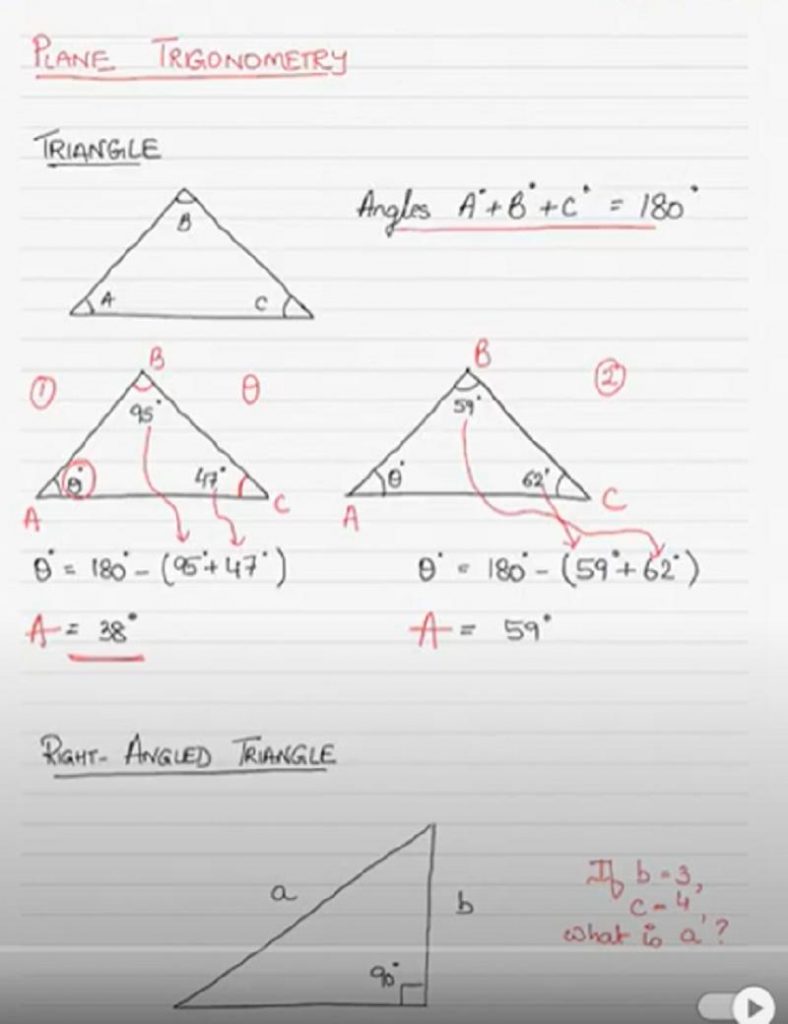 PLANE TRIGONOMETRY
TRIANGLE
B
A
C
Angles A° + B° + C° = 180°
① B θ
95°
θ° 47°
A C
B ②
59°
θ° 62°
A C
θ° = 180° - (95° + 47°)
A = 38°
θ° = 180° - (59° + 62°)
A = 59°
RIGHT-ANGLED TRIANGLE
a
b
90°
If b = 3,
c = 4,
what is a?